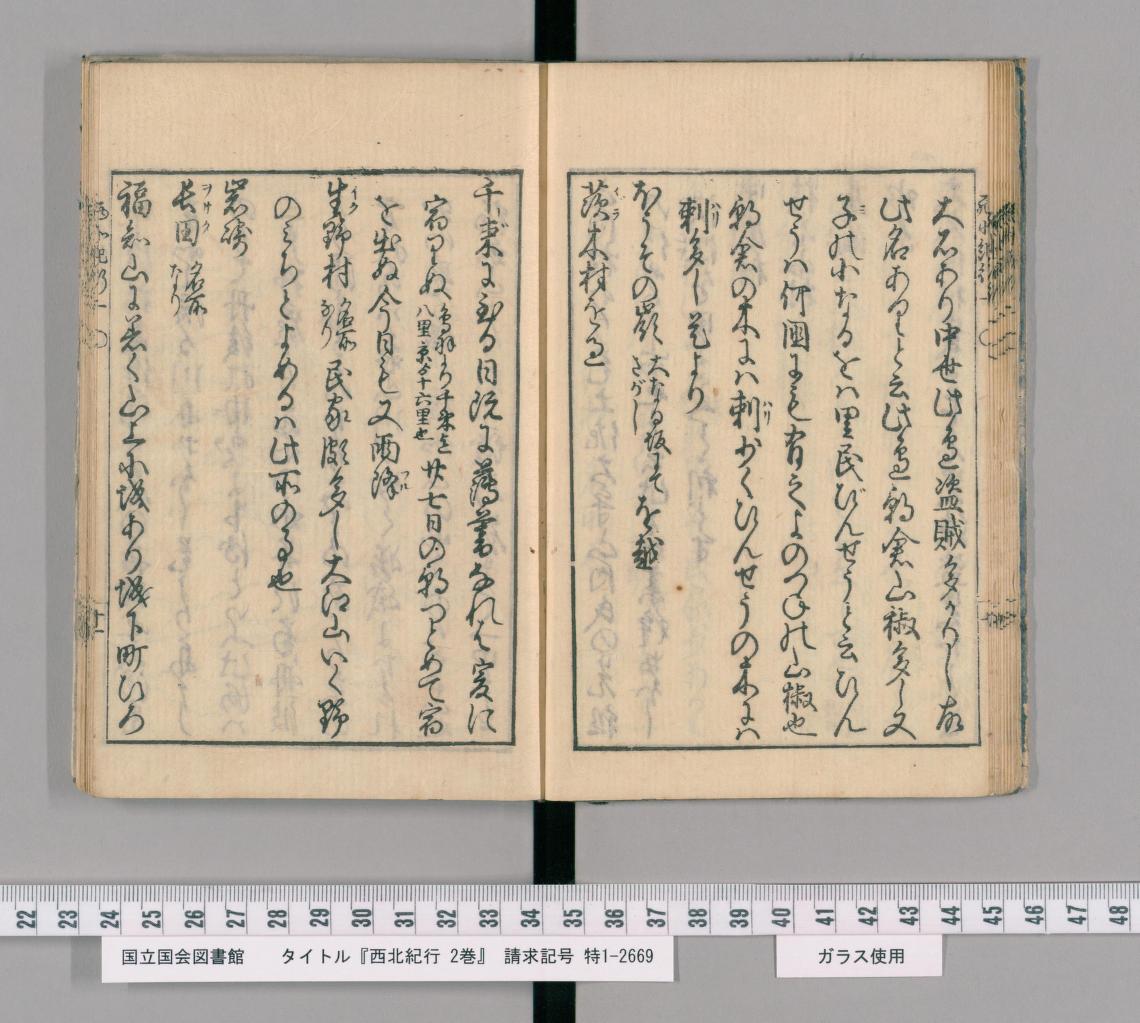 大石あり中世此邊盗賊多かりし故
此名ありと云此邊朝倉山椒多し又
子の小なるをは里民びんせうと云ひん
せうハ何國にも有之よのつねの山椒也
朝倉の木にハ刺少くひんせうの木にハ
刺多し是より
ほうその嶺 大なる坂にてさがし を越
茨木村を過
千束に到る日既に薄暮なれは爰に
宿りぬ 鳥羽より千束迄八里京より十六里也 廿七日の朝つとめて宿
を出ぬ今日も又雨降
生野村 名所なり 民家頗多し大江山いく野
のみちとよめるハ此所の事也
岩崎
長田 名所なり
福知山に着く山上に城あり城下町ひろ
22 23 24 25 26 27 28 29 30 31 32 33 34 35 36 37 38 39 40 41 42 43 44 45 46 47 48
国立国会図書館 タイトル『西北紀行 2巻』 請求記号 特1-2669
ガラス使用